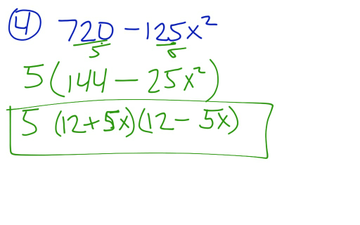 ④ 720 - 125x²
5 5
5(144 - 25x²)
5 (12+5x)(12 - 5x)